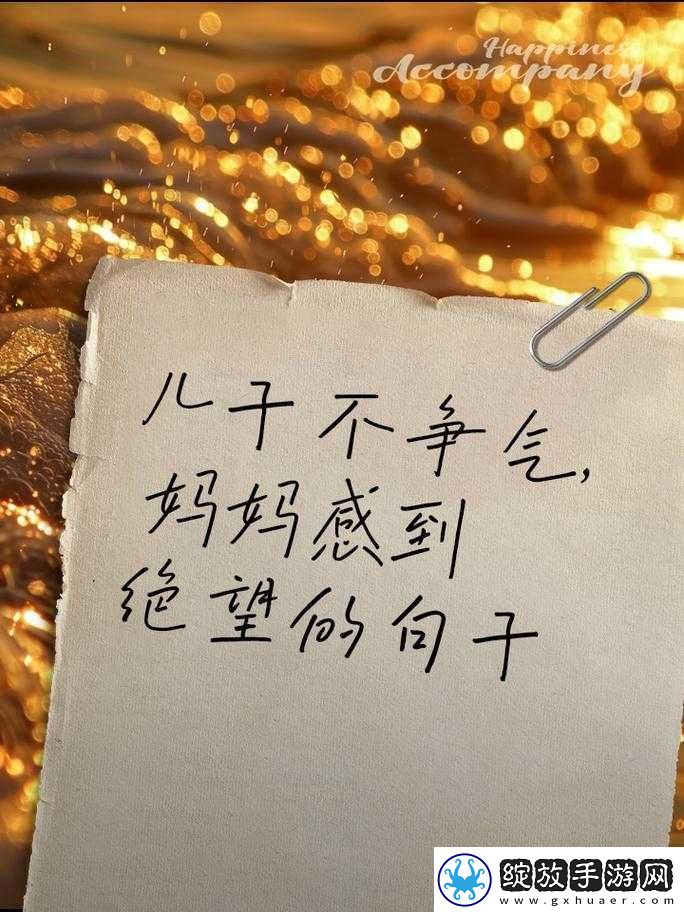 Happiness
Accompany
儿子不争气,
妈妈感到
绝望的句子
绽放手游网
www.gxhuaer.com